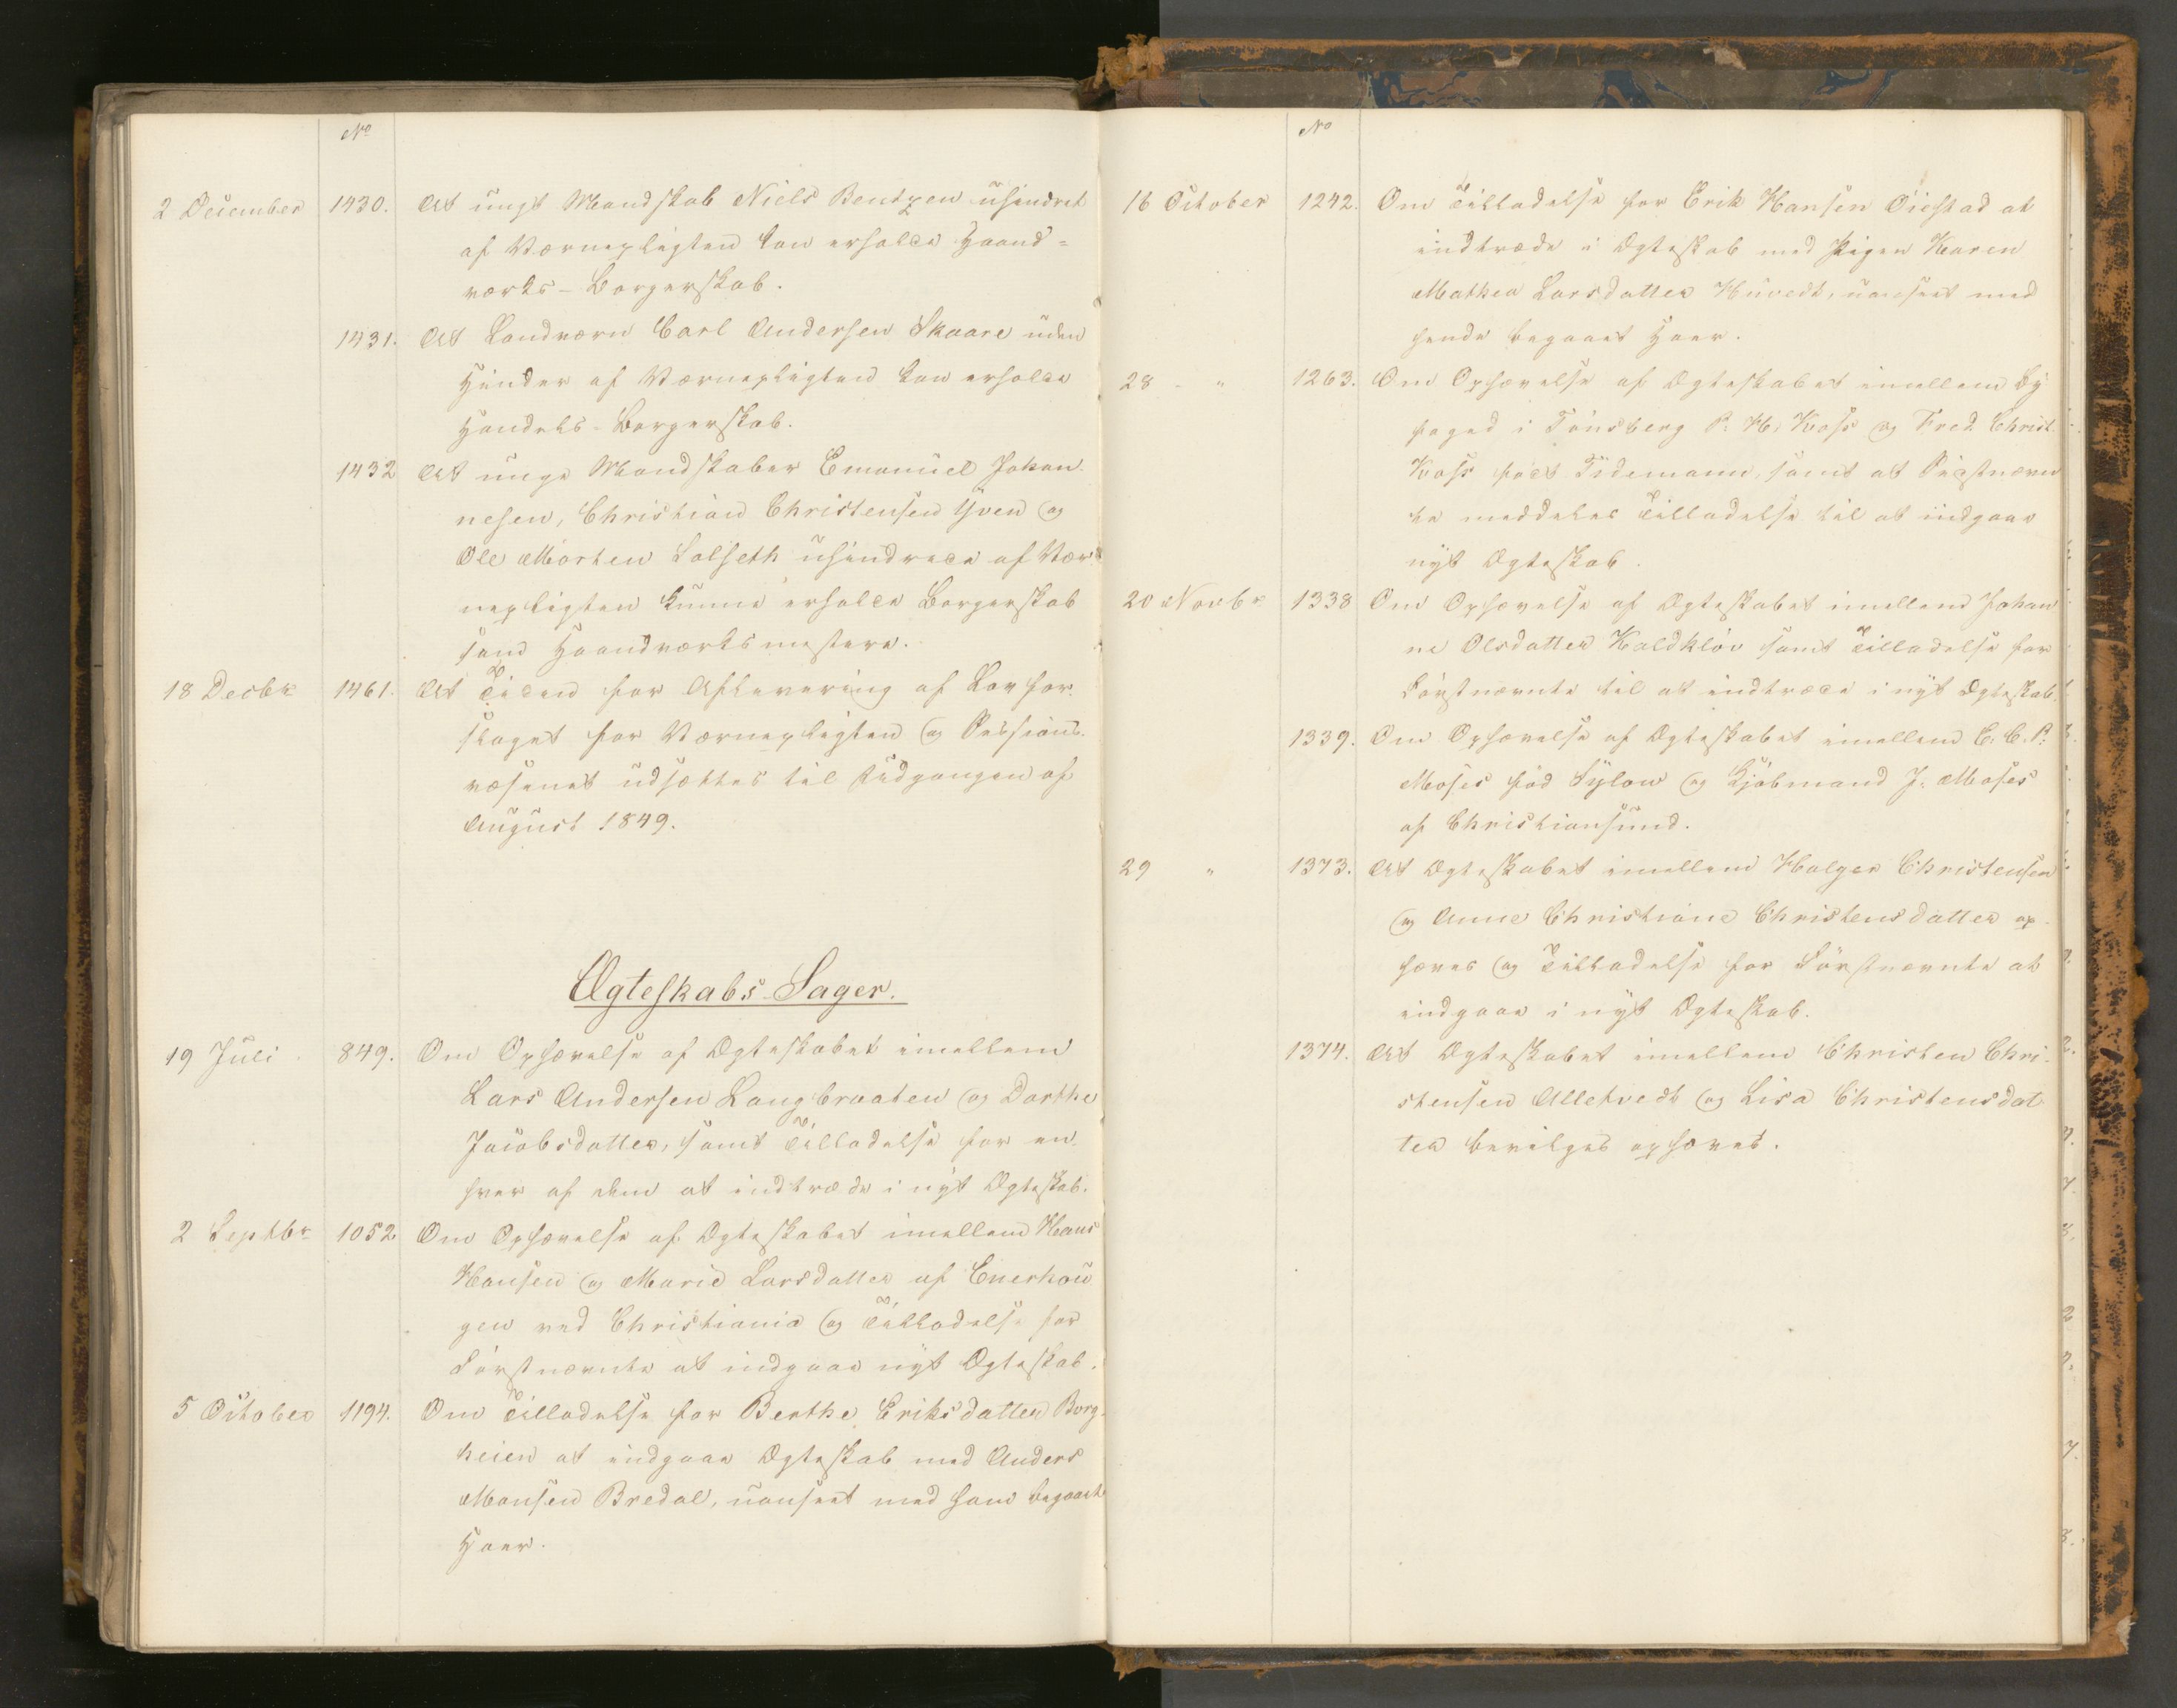 No
2 December 1430. At ungt Mandskab Niels Bentzen uhindret
af Værnepligten kan erholde Haand=
værks-Borgerskab.
1431. At Landværn Carl Andersen Skaare uden
Hinder af Værnepligten kan erholde
Handels-Borgerskab.
1432 At unge Mandskaber Emanuel Johan-
nesen, Christian Christensen Hven og
Ole Morten Solseth uhindrede af Vær-
nepligten kunne erholde Borgerskab
som Haandværksmestere.
18 Decbr 1461. At Tiden for Aflevering af Lovfor-
slaget for Værnepligten og Sessions-
væsenet udsættes til Udgangen af
August 1849.
Ægteskabs-Sager.
19 Juli 849. Om Ophævelse af Ægteskabet imellem
Lars Andersen Langbraaten og Dorthe
Jacobsdatter, samt Tilladelse for en-
hver af dem at indtræde i nyt Ægteskab.
2 Septbr 1052 Om Ophævelse af Ægteskabet imellem Hans
Hansen og Marie Larsdatter af Enerhou
gen ved Christiania og Tilladelse for
Førstnævnte at indgaae nyt Ægteskab.
5 October 1194. Om Tilladelse for Berthe Eriksdatter Borg-
heien at indgaae Ægteskab med Anders
Monsen Bredal, uanseet med ham begaaet
Hoer.
No
16 October 1242. Om Tilladelse for Erik Hansen Øiestad at
indtræde i Ægteskab med Pigen Karen
Mathea Larsdatter Huvedt, uanseet med
hende begaaet Hoer.
28 - " 1263. Om Ophævelse af Ægteskabet imellem By
foged i Tønsberg P. H. Koss og Fred. Christ.
Koss født Tidemann, samt at Sidstnævn
te meddeles Tilladelse til at indgaae
nyt Ægteskab.
20 Novbr 1338 Om Ophævelse af Ægteskabet imellem Johan
ne Olsdatter Kaldkløv samt Tilladelse for
Førstnævnte til at indtræde i nyt Ægteskab.
1339. Om Ophævelse af Ægteskabet imellem C. C. P.
Moses fød Sylow og Kjøbmand J. Moses
af Christiansund.
29 " 1373. At Ægteskabet imellem Holger Christensen
og Anne Christiane Christensdatter op-
hæves og Tilladelse for Førstnævnte at
indgaae i nyt Ægteskab.
1374. At Ægteskabet imellem Christen Chri-
stensen Alletvedt og Lisa Christensdat
ter bevilges ophævet.